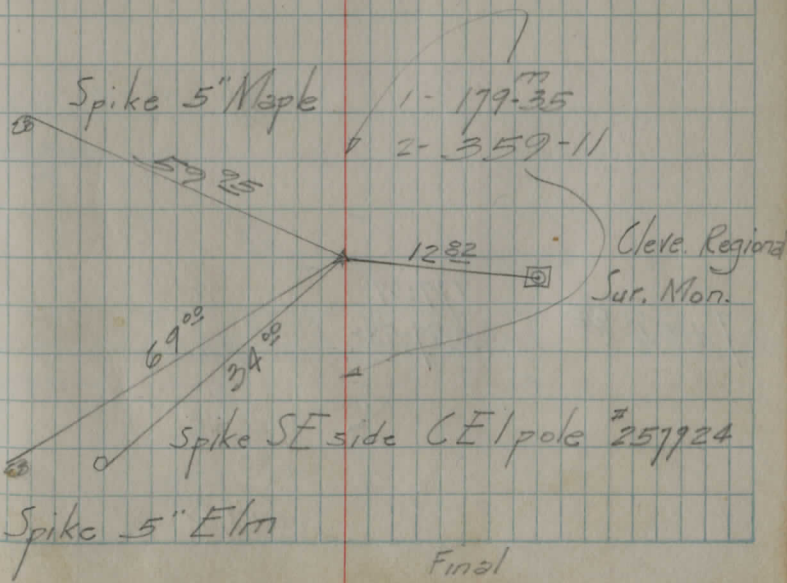 Spike 5" Maple
1- 179-35
2- 359-11
59 25
12 82
Cleve. Regional
Sur. Mon.
69 00
34 00
Spike SE side CEI pole #257924
Spike 5" Elm
Final